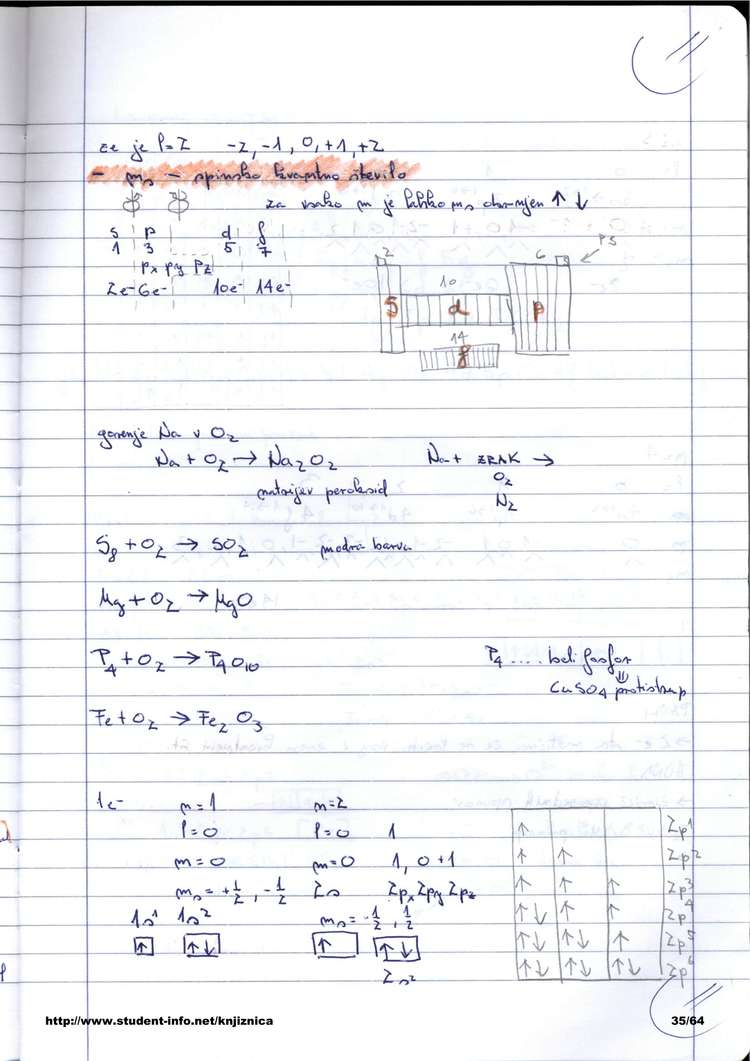 če je l=2 -2,-1,0,+1,+2
- ms - spinsko kvantno število
za vsako m je lahko ms obrnjen ↑ ↓
s p d f
1 3 5 7
px py pz
2e- 6e- 10e- 14e-
2 6 PS
10
s d p
14
f
gorenje Na v O2
Na + O2 → Na2O2 Na + ZRAK →
natrijev peroksid O2
N2
S8 + O2 → SO2 modra barva
Mg + O2 → MgO
P4 + O2 → P4O10 P4 .... beli fosfor
⇓
CuSO4 protistrup
Fe + O2 → Fe2O3
1e- n=1 n=2
l=0 l=0 1
m=0 m=0 1, 0 +1
ms = +1/2, -1/2 2s 2px 2py 2pz
1s1 1s2 ms = -1/2, 1/2
↑ ↑↓ ↑ ↑↓
2s2
↑ 2p1
↑ ↑ 2p2
↑ ↑ ↑ 2p3
↑↓ ↑ ↑ 2p4
↑↓ ↑↓ ↑ 2p5
↑↓ ↑↓ ↑↓ 2p6
http://www.student-info.net/knjiznica 35/64